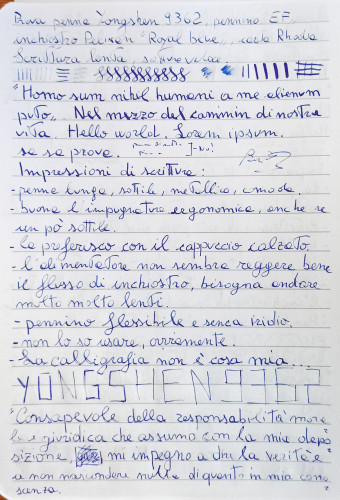 Prova penna Yongshen 9362, pennino EF
inchiostro Pelikan "Royal blue", carta Rhodia
Scrittura lenta, veloce
"Homo sum nihil humani a me alienum
puto". Nel mezzo del cammin di nostra
vita. Hello world. Lorem ipsum.
sa sa prova.
Impressioni di scrittura:
- penna lunga, sottile, metallica, comoda.
- buona l'impugnatura ergonomica, anche se
un pò sottile.
- la preferisco con il cappuccio calzato.
- l'alimentatore non sembra reggere bene
il flusso di inchiostro, bisogna andare
molto molto lenti.
- pennino flessibile e senza iridio.
- non lo so usare, ovviamente.
- La calligrafia non è cosa mia...
YONGSHEN 9362
"Consapevole della responsabilità mora
le e giuridica che assumo con la mia depo
sizione, mi impegno a dire la verità e
a non nascondere nulla di quanto in mia cono
scenza."